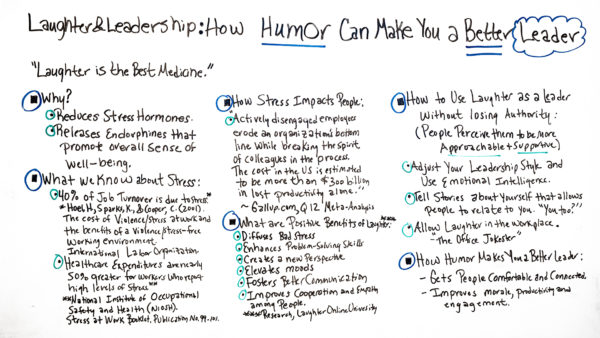 Laughter & Leadership: How Humor Can Make You a Better Leader
"Laughter is the Best Medicine."
Why?
Reduces Stress Hormones.
Releases Endorphines that
promote overall sense of
well-being.
What We Know about Stress:
40% of Job Turnover is due to stress.*
*Hoel, H., Sparks, K., & Cooper, C. (2001).
The cost of Violence/Stress at work and
the benefits of a violence/stress-free
working environment.
International Labor Organization.
Healthcare Expenditures are nearly
50% greater for workers who report
high levels of stress**
**National Institute of Occupational
Safety and Health (NIOSH).
Stress at Work Booklet. Publication No. 99-101.
How Stress Impacts People:
Actively disengaged employees
erode an organization's bottom
line while breaking the spirit
of colleagues in the process.
The cost in the US is estimated
to be more than $300 billion
in lost productivity alone."
~ Gallup.com, Q12 Meta-Analysis
What are Positive Benefits of Laughter:
Diffuses Bad Stress
Enhances Problem-Solving Skills
Creates a new Perspective
Elevates moods
Fosters Better Communication
Improves Cooperation and Empathy
among People.
Research, Laughter Online University
How to Use Laughter as a Leader
Without losing Authority:
(People Perceive them to be more
Approachable + Supportive)
Adjust Your Leadership Style and
Use Emotional Intelligence.
Tell Stories about Yourself that allows
People to relate to you. "You too?"
Allow Laughter in the workplace.
- "The Office Jokester"
How Humor Makes You a Better Leader:
- Gets People Comfortable and Connected.
- Improves morale, productivity and
engagement.